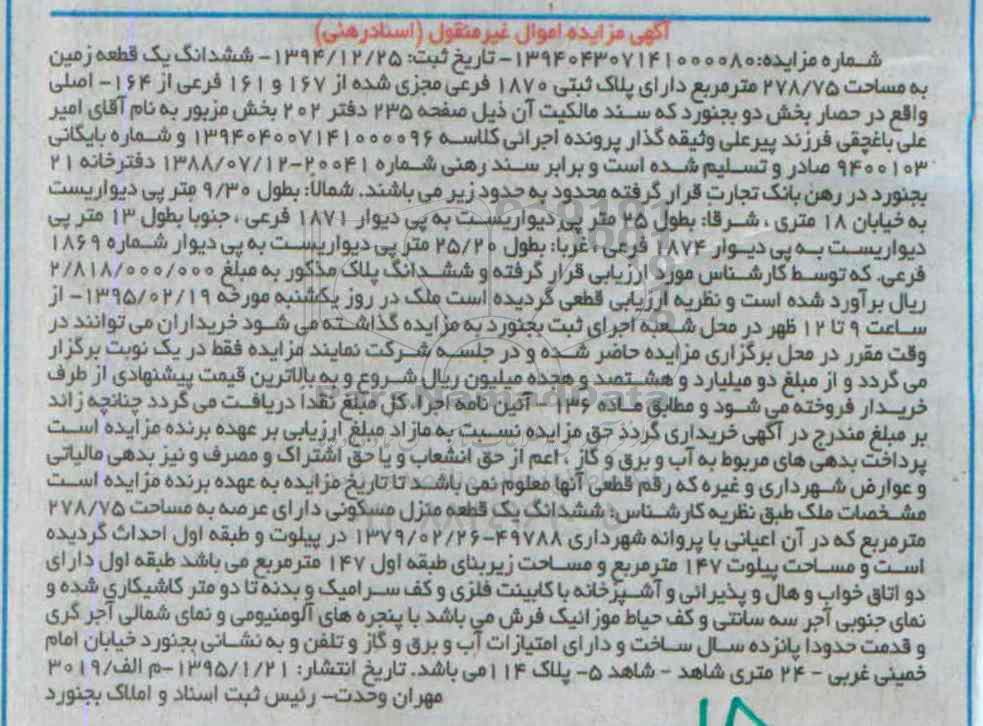 آگهی مزایده اموال غیرمنقول (اسنادرهنی)
شماره مزایده: ۱۳۹۴۰۴۳۰۷۱۴۱۰۰۰۰۸۰- تاریخ ثبت: ۱۳۹۴/۱۲/۲۵- ششدانگ یک قطعه زمین
به مساحت ۲۷۸/۷۵ مترمربع دارای پلاک ثبتی ۱۸۷۰ فرعی مجزی شده از ۱۶۷ و ۱۶۱ فرعی از ۱۶۴- اصلی
واقع در حصار بخش دو بجنورد که سند مالکیت آن ذیل صفحه ۲۳۵ دفتر ۲۰۲ بخش مزبور به نام آقای امیر
علی باغچقی فرزند پیرعلی وثیقه گذار پرونده اجرائی کلاسه ۱۳۹۴۰۴۰۰۷۱۴۱۰۰۰۰۹۶ و شماره بایگانی
۹۴۰۰۱۰۳ صادر و تسلیم شده است و برابر سند رهنی شماره ۲۰۰۴۱-۱۳۸۸/۰۷/۱۲ دفترخانه ۲۱
بجنورد در رهن بانک تجارت قرار گرفته محدود به حدود زیر می باشند. شمالا: بطول ۹/۳۰ متر پی دیواریست
به خیابان ۱۸ متری ، شرقا: بطول ۲۵ متر پی دیواریست به پی دیوار ۱۸۷۱ فرعی ، جنوبا بطول ۱۳ متر پی
دیواریست به پی دیوار ۱۸۷۴ فرعی ، غربا: بطول ۲۵/۲۰ متر پی دیواریست به پی دیوار شماره ۱۸۶۹
فرعی. که توسط کارشناس مورد ارزیابی قرار گرفته و ششدانگ پلاک مذکور به مبلغ ۲/۸۱۸/۰۰۰/۰۰۰
ریال برآورد شده است و نظریه ارزیابی قطعی گردیده است ملک در روز یکشنبه مورخه ۱۳۹۵/۰۲/۱۹- از
ساعت ۹ تا ۱۲ ظهر در محل شعبه اجرای ثبت بجنورد به مزایده گذاشته می شود خریداران می توانند در
وقت مقرر در محل برگزاری مزایده حاضر شده و در جلسه شرکت نمایند مزایده فقط در یک نوبت برگزار
می گردد و از مبلغ دو میلیارد و هشتصد و هجده میلیون ریال شروع و به بالاترین قیمت پیشنهادی از طرف
خریدار فروخته می شود و مطابق ماده ۱۳۶ - آئین نامه اجرا، کل مبلغ نقدا دریافت می گردد چنانچه زائد
بر مبلغ مندرج در آگهی خریداری گردد حق مزایده نسبت به مازاد مبلغ ارزیابی بر عهده برنده مزایده است
پرداخت بدهی های مربوط به آب و برق و گاز ، اعم از حق انشعاب و یا حق اشتراک و مصرف و نیز بدهی مالیاتی
و عوارض شهرداری و غیره که رقم قطعی آنها معلوم نمی باشند تا تاریخ مزایده به عهده برنده مزایده است
مشخصات ملک طبق نظریه کارشناس: ششدانگ یک قطعه منزل مسکونی دارای عرصه به مساحت ۲۷۸/۷۵
مترمربع که در آن اعیانی با پروانه شهرداری ۴۹۷۸۸-۱۳۷۹/۰۲/۲۶ در پیلوت و طبقه اول احداث گردیده
است و مساحت پیلوت ۱۴۷ مترمربع و مساحت زیربنای طبقه اول ۱۴۷ مترمربع می باشد طبقه اول دارای
دو اتاق خواب و هال و پذیرائی و آشپزخانه با کابینت فلزی و کف سرامیک و بدنه تا دو متر کاشیکاری شده و
نمای جنوبی آجر سه سانتی و کف حیاط موزائیک فرش می باشد با پنجره های آلومنیومی و نمای شمالی آجر گری
و قدمت حدودا پانزده سال ساخت و دارای امتیازات آب و برق و گاز و تلفن و به نشانی بجنورد خیابان امام
خمینی غربی - ۲۴ متری شاهد - شاهد ۵- پلاک ۱۱۴ می باشد. تاریخ انتشار: ۱۳۹۵/۱/۲۱-م الف/۳۰۱۹
مهران وحدت- رئیس ثبت اسناد و املاک بجنورد
۱۵